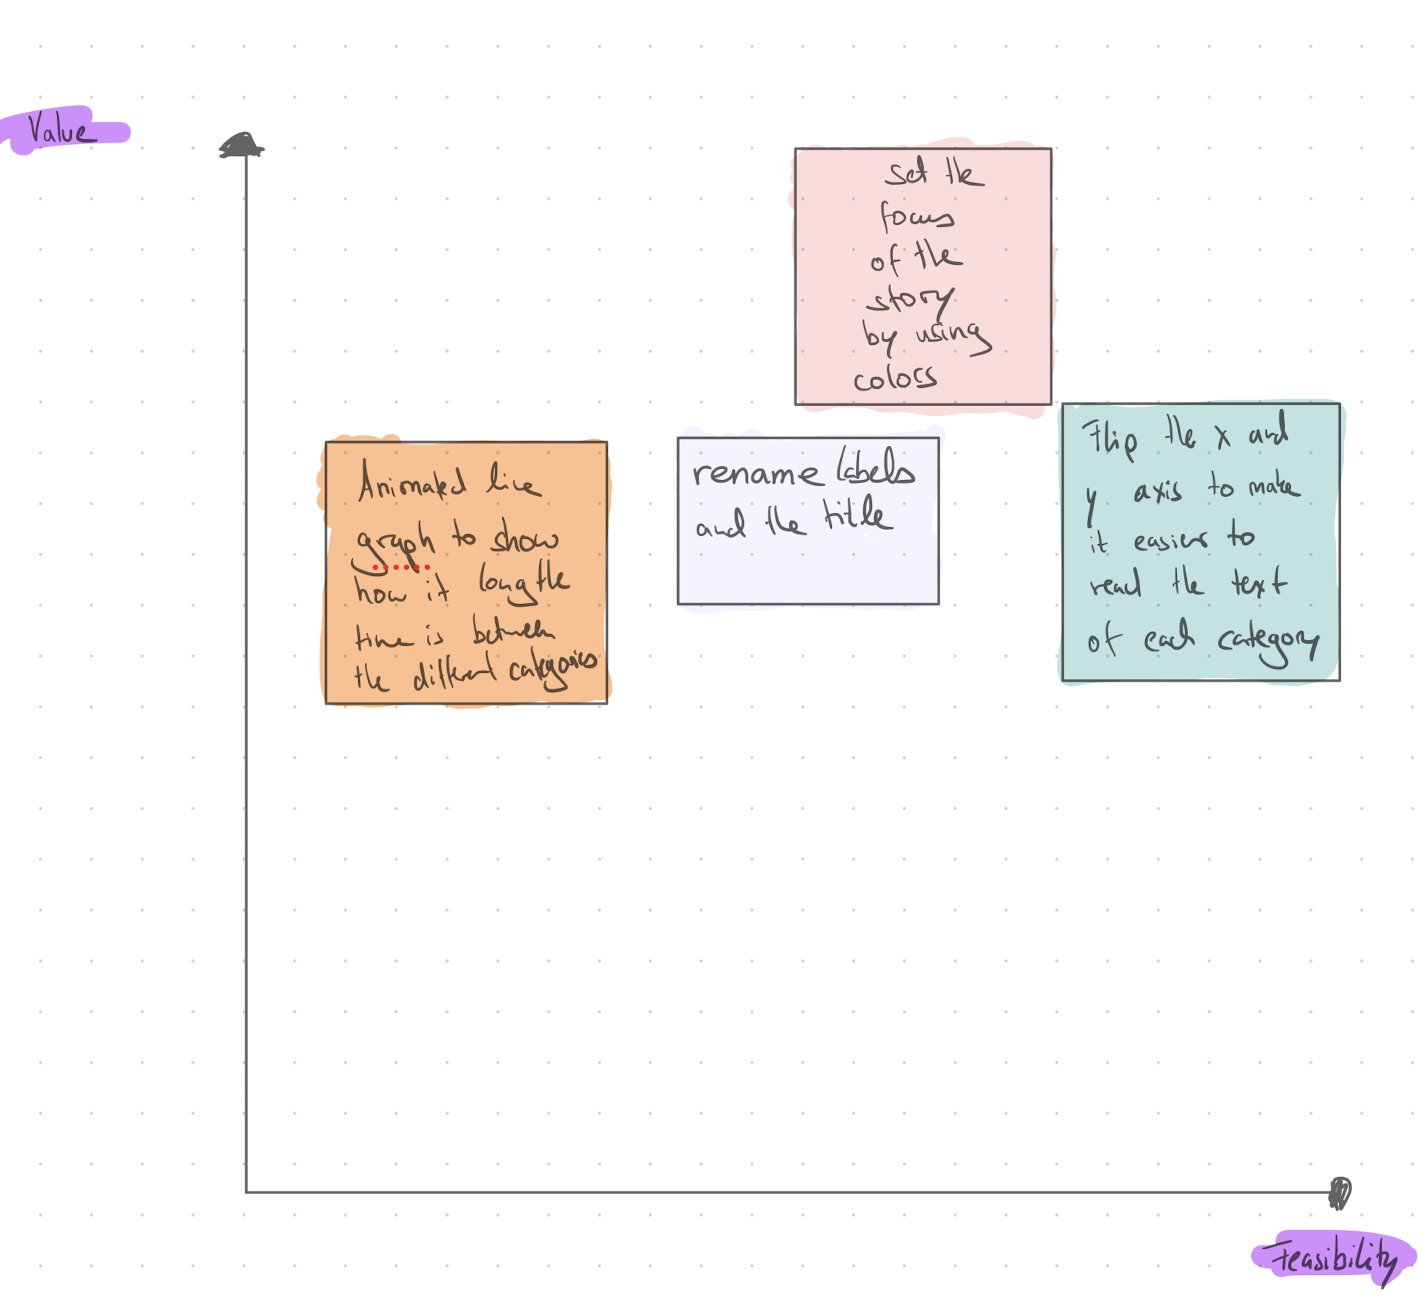 Value
Set the
focus
of the
story
by using
colors
Animated line
graph to show
how it long the
time is between
the different categories
rename labels
and the title
Flip the x and
y axis to make
it easier to
read the text
of each category
Feasibility